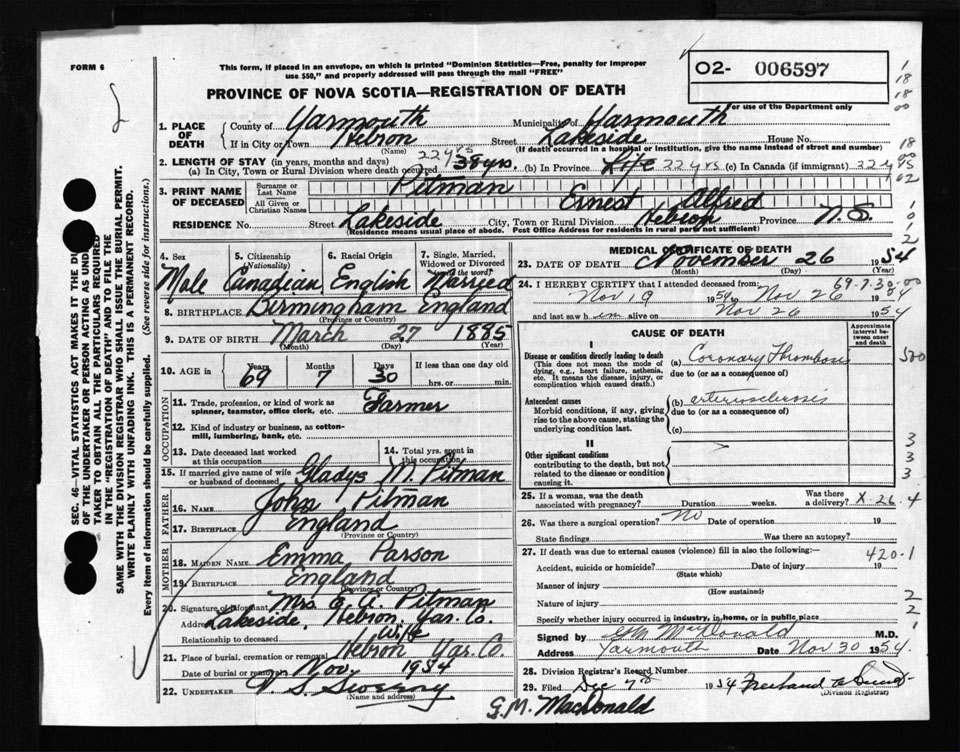 FORM 6
This form, if placed in an envelope, on which is printed "Dominion Statistics—Free, penalty for improper
use $50," and properly addressed will pass through the mail "FREE"
O2- 006597
For use of the Department only
PROVINCE OF NOVA SCOTIA—REGISTRATION OF DEATH
1. PLACE OF DEATH
County of Yarmouth Municipality of Yarmouth
If in City or Town Hebron Street Lakeside House No.
(Name) (If death occurred in a hospital or institution, give the name instead of street and number)
2. LENGTH OF STAY (in years, months and days)
(a) In City, Town or Rural Division where death occurred 22 yrs 38 yrs. (b) In Province Life 22 yrs (c) In Canada (if immigrant) 22 yrs
3. PRINT NAME OF DECEASED
Surname or Last Name Pitman
All Given or Christian Names Ernest Alfred
RESIDENCE No. Street Lakeside City, Town or Rural Division Hebron Province N.S.
(Residence means usual place of abode. Post Office Address for residents in rural parts not sufficient)
4. Sex Male
5. Citizenship (Nationality) Canadian
6. Racial Origin English
7. Single, Married, Widowed or Divorced (the word) Married
8. BIRTHPLACE Birmingham England
(Province or Country)
9. DATE OF BIRTH March 27 1885
(Month) (Day) (Year)
10. AGE in Years 69 Months 7 Days 30 If less than one day old
hrs. or min.
OCCUPATION
11. Trade, profession, or kind of work as spinner, teamster, office clerk, etc. Farmer
12. Kind of industry or business, as cotton-mill, lumbering, bank, etc.
13. Date deceased last worked at this occupation
14. Total yrs. spent in this occupation
15. If married give name of wife or husband of deceased Gladys M. Pitman
FATHER
16. NAME John Pitman
17. BIRTHPLACE England
(Province or Country)
MOTHER
18. MAIDEN NAME Emma Parson
19. BIRTHPLACE England
(Province or Country)
20. Signature of informant Mrs E. A. Pitman
Address Lakeside, Hebron, Yar. Co.
Relationship to deceased Wife
21. Place of burial, cremation or removal Hebron Yar. Co.
Date of burial or removal Nov. 1954
22. UNDERTAKER V. S.
(Name and address)
MEDICAL CERTIFICATE OF DEATH
23. DATE OF DEATH November 26 1954
(Month) (Day) (Year)
69-7-30-00
24. I HEREBY CERTIFY that I attended deceased from
Nov 19 1954 to Nov 26 1954
and last saw him alive on Nov 26 1954
CAUSE OF DEATH
Approximate interval between onset and death
I
Disease or condition directly leading to death (a) Coronary Thrombosis
(This does not mean the mode of dying, e.g., heart failure, asthenia, etc. It means the disease, injury, or complication which caused death.)
due to (or as a consequence of)
Antecedent causes (b) arteriosclerosis
Morbid conditions, if any, giving rise to the above cause, stating the underlying condition last.
due to (or as a consequence of)
(c)
II
Other significant conditions
contributing to the death, but not related to the disease or condition causing it.
25. If a woman, was the death associated with pregnancy? Duration weeks. Was there a delivery? X-26.4
26. Was there a surgical operation? No Date of operation 19
State findings Was there an autopsy?
27. If death was due to external causes (violence) fill in also the following:—
420-1
Accident, suicide or homicide? Date of injury 19
(State which)
Manner of injury
(How sustained)
Nature of injury
Specify whether injury occurred in industry, in home, or in public place
Signed by GM MacDonald M.D.
Address Yarmouth Date Nov 30 1954.
28. Division Registrar's Record Number
29. Filed Dec 7th 1954
(Division Registrar)
G.M. MacDonald
SEC. 46—VITAL STATISTICS ACT MAKES IT THE DU
OF THE UNDERTAKER OR PERSON ACTING AS UND
TAKER TO OBTAIN ALL THE PARTICULARS REQUIRED
IN THE "REGISTRATION OF DEATH" AND TO FILE THE
SAME WITH THE DIVISION REGISTRAR WHO SHALL ISSUE THE BURIAL PERMIT.
WRITE PLAINLY WITH UNFADING INK. THIS IS A PERMANENT RECORD.
Every item of information should be carefully supplied. (See reverse side for instructions.)